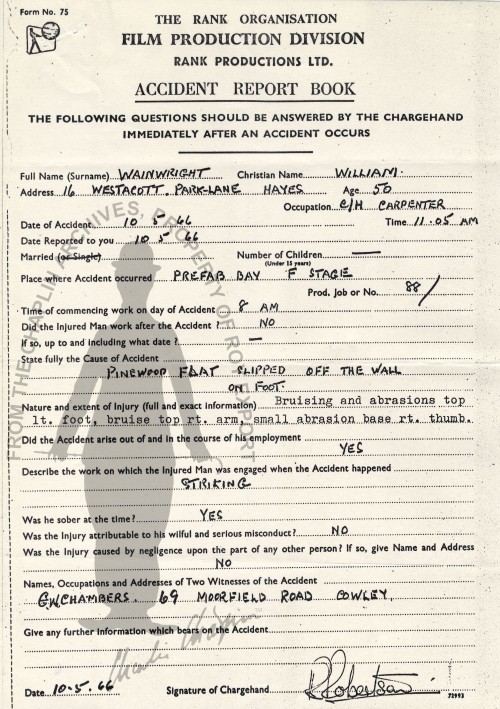 Form No. 75
THE RANK ORGANISATION
FILM PRODUCTION DIVISION
RANK PRODUCTIONS LTD.
ACCIDENT REPORT BOOK
THE FOLLOWING QUESTIONS SHOULD BE ANSWERED BY THE CHARGEHAND
IMMEDIATELY AFTER AN ACCIDENT OCCURS
Full Name (Surname) WAINWRIGHT Christian Name WILLIAM.
Address 16 WESTACOTT, PARK-LANE HAYES Age 50
Occupation C/H CARPENTER
Date of Accident 10 5 66 Time 11.05 AM
Date Reported to you 10 5 66
Married (or Single) Number of Children —
(Under 15 years)
Place where Accident occurred PREFAB BAY F STAGE
Prod. Job or No. 88/
Time of commencing work on day of Accident 8 AM
Did the Injured Man work after the Accident? NO
If so, up to and including what date? —
State fully the Cause of Accident
PINEWOOD FLAT SLIPPED OFF THE WALL
ON FOOT.
Nature and extent of Injury (full and exact information) Bruising and abrasions top
lt. foot, bruise top rt. arm, small abrasion base rt. thumb.
Did the Accident arise out of and in the course of his employment
YES
Describe the work on which the Injured Man was engaged when the Accident happened
STRIKING
Was he sober at the time? YES
Was the Injury attributable to his wilful and serious misconduct? NO
Was the Injury caused by negligence upon the part of any other person? If so, give Name and Address
NO
Names, Occupations and Addresses of Two Witnesses of the Accident
G.W.CHAMBERS. 69 MOORFIELD ROAD COWLEY.
Give any further information which bears on the Accident
Date 10.5.66 Signature of Chargehand R Robertson
72993
FROM THE CHAPLIN ARCHIVES, PROPERTY OF ROY EXPORT
Charlie Chaplin